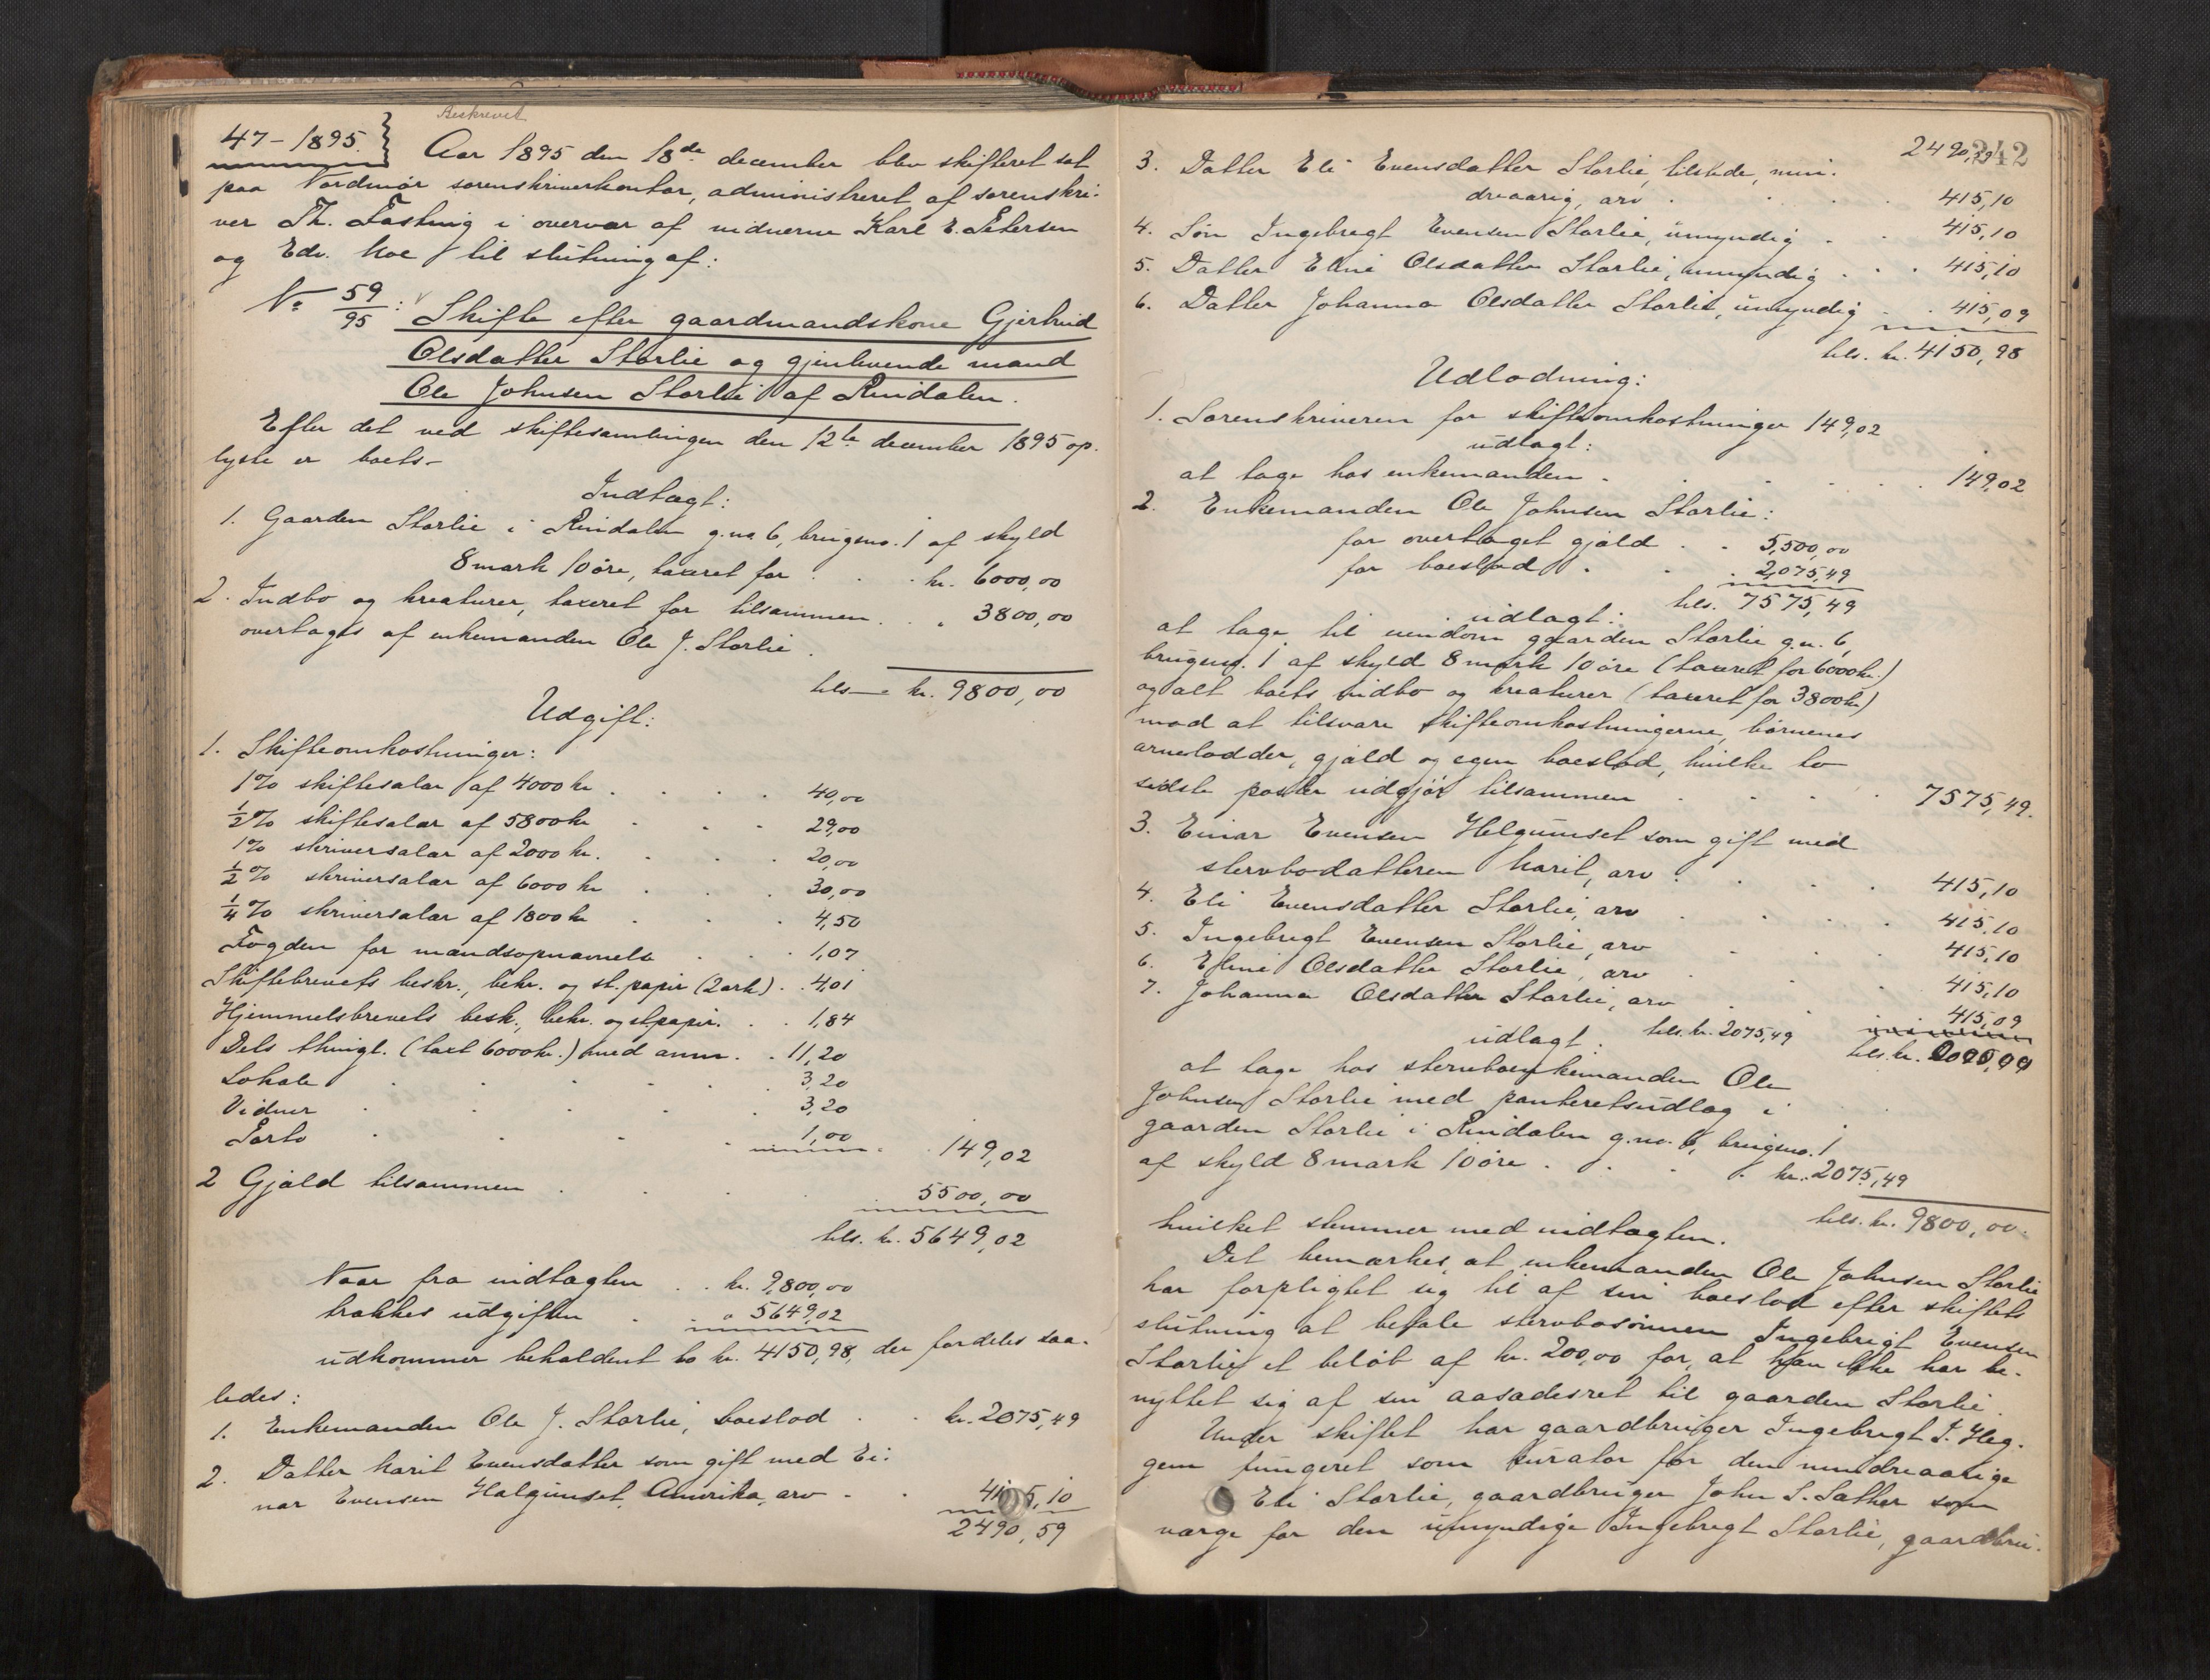 Beskrevet
47-1895. Aar 1895 den 18de december blev skifteret sat
paa Nordmør sorenskriverkontor, administreret af sorenskri-
ver Th. Fasting i overvær af vidnerne Karl E. Petersen
og Edv. Moe til slutning af:
No 59/95: Skifte efter gaardmandskone Gjertrud
Olsdatter Storlie og gjenlevende mand
Ole Johnsen Storlie af Rindalen.
Efter det ved skiftesamlingen den 12te december 1895 op-
lyste er boets-
Indtægt:
1. Gaarden Storlie i Rindalen g.no 6, brugsno. 1 af skyld
8 mark 10 øre, taxeret for . . . kr. 6000,00
2. Indbo og kreaturer, taxeret for tilsammen . . " 3800,00
overtages af enkemanden Ole J. Storlie.
tils. kr. 9800,00
Udgift:
1. Skifteomkostninger:
1% skiftesalær af 4000 kr . . . . 40,00
½% skiftesalær af 5800 kr . . . 29,00
1% skriversalær af 2000 kr. . . . 20,00
½% skriversalær af 6000 kr . . . 30,00
¼% skriversalær af 1800 kr . . . 4,50
Fogden for mandsopnævnelse . . . 1,07
Skiftebrevets beskr., bekr. og st. papir (2 ark) . . 4,01
Hjemmelsbrevets besk., bekr. og st.papir. . . 1,84
Dets thingl. (taxt 6000 kr.) med anm. . 11,20
Lokale . . . . . 3,20
Vidner . . . . . 3,20
Porto . . . . 1,00 . 149,02
2 Gjæld tilsammen . . . . . 5500,00
tils. kr. 5649,02
Naar fra indtægten . . kr. 9,800,00
trækkes udgiften . . " 5649,02
udkommer beholdent bo kr. 4150,98, der fordeles saa-
ledes:
1. Enkemanden Ole J. Storlie, boeslod . . kr. 2075,49
2. Datter Marit Evensdatter som gift med Ei-
nar Evensen Halgunset, Amerika, arv . . 415,10
2490,59
2490,59
242
3. Datter Eli Evensdatter Storlie, tilstede, min-
dreaarig, arv . . . . . 415,10
4. Søn Ingebrigt Evensen Storlie, umyndig . . 415,10
5. Datter Eline Olsdatter Storlie, umyndig . . . 415,10
6. Datter Johanna Olsdatter Storlie, umyndig . . 415,09
tils. kr. 4150,98
Udlodning:
1. Sorenskriveren for skifteomkostninger 149,02
udlagt:
at tage hos enkemanden . . . . . . 149,02
2. Enkemanden Ole Johnsen Storlie:
for overtaget gjæld . . 5,500,00
for boeslod . . . 2,075,49
tils. 7575,49
udlagt:
at tage til eiendom gaarden Storlie g.n. 6,
brugsno. 1 af skyld 8 mark 10 øre (taxeret for 6000 kr.)
og alt boets indbo og kreaturer (taxeret for 3800 kr)
mod at tilsvare skifteomkostningerne, børnenes
arvelodder, gjæld og egen boeslod, hvilke to
sidste poster udgjør tilsammen . . . . 7575,49.
3. Einar Evensen Helgunset som gift med
stervbodatteren Marit, arv . . . . 415,10
4. Eli Evensdatter Storlie, arv . . . . 415,10
5. Ingebrigt Evensen Storlie, arv . . . 415,10
6. Eline Olsdatter Storlie, arv . . . 415,10
7. Johanna Olsdatter Storlie, arv . . . 415,09
udlagt: tils. kr. 2075,49 tils. kr.
at tage hos stervboenkemanden Ole
Johnsen Storlie med panteretsudlæg i
gaarden Storlie i Rindalen g.no. 6, brugsno. 1
af skyld 8 mark 10 øre . . . . kr. 2075,49
tils. kr. 9800,00.
hvilket stemmer med indtægten.
Det bemærkes, at enkemanden Ole Johnsen Storlie
har forpligtet sig til af sin boeslod efter skiftets
slutning at betale stervbosønnen Ingebrigt Evensen
Storlie et beløb af kr. 200,00 for, at han ikke har be-
nyttet sig af sin aasædesret til gaarden Storlie.
Under skiftet har gaardbruger Ingebrigt I. Heg-
gem fungeret som kurator for den mindreaarige
Eli Storlie, gaardbruger John S. Sæther som
værge for den umyndige Ingebrigt Storlie, gaardbru-